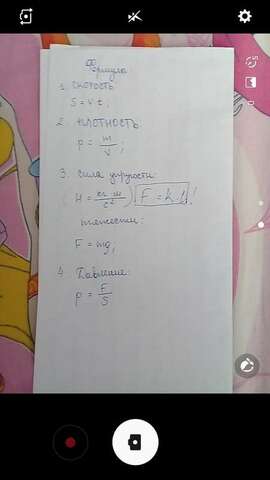 Формула
1. СКОРОСТЬ
S = v t ;
2. ПЛОТНОСТЬ
p = m/V ;
3. Сила упругости:
( H = кг м/с² ) F = k l !
тяжести:
F = mg ;
4. Давление:
p = F/S